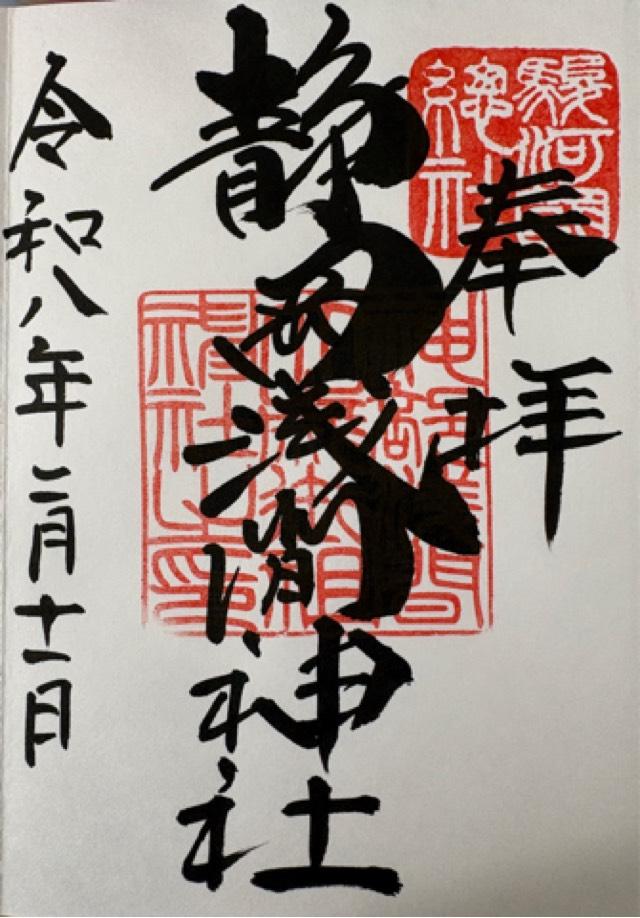 駿河國
總社
奉拝
静岡浅間神社
令和八年二月十一日